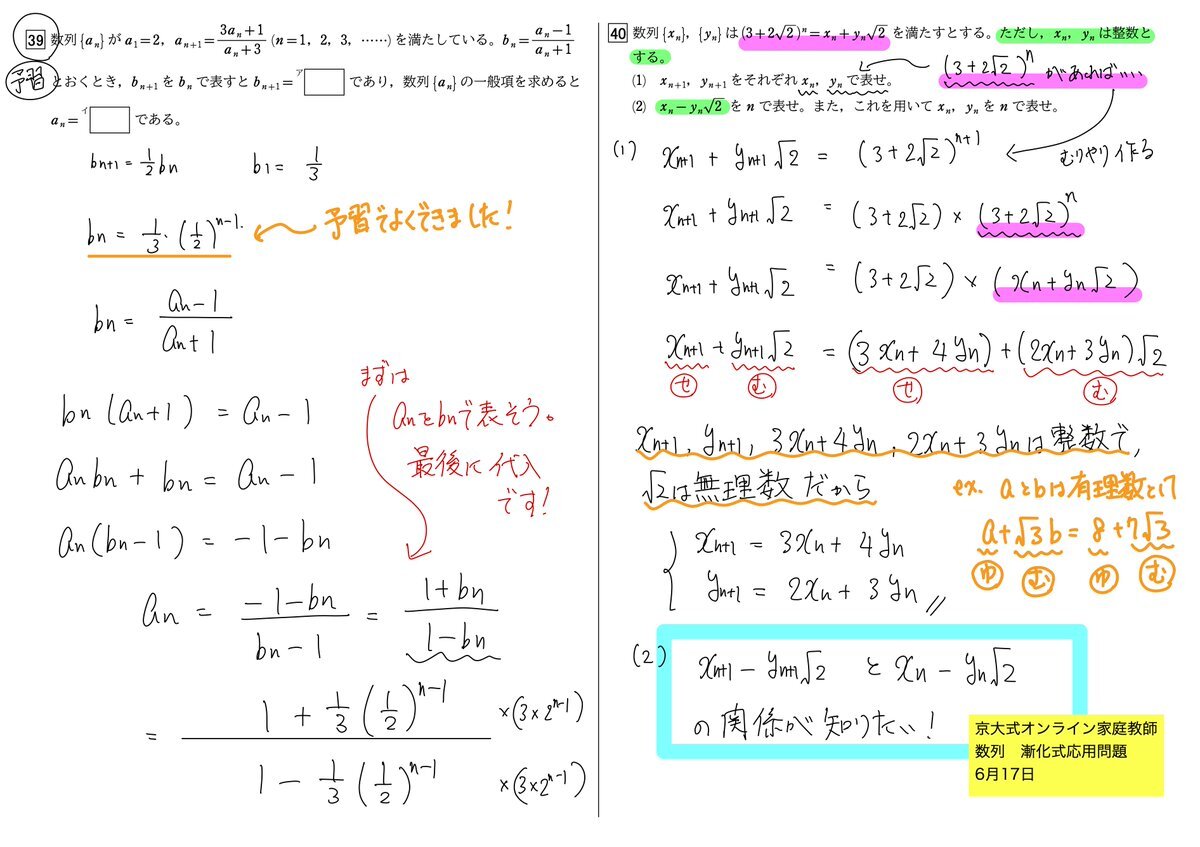 39 数列{aₙ}がa₁=2，aₙ₊₁=(3aₙ+1)/(aₙ+3) (n=1，2，3，……)を満たしている。bₙ=(aₙ−1)/(aₙ+1)
予習
とおくとき，bₙ₊₁をbₙで表すとbₙ₊₁=ア□であり，数列{aₙ}の一般項を求めると
aₙ=イ□である。
bn+1 = 1/2 bn b1 = 1/3
bn = 1/3・(1/2)^(n-1). ← 予習でよくできました!
bn = (an-1)/(an+1)
まずは
anをbnで表そう。
最後に代入
です!
bn(an+1) = an-1
anbn+bn = an-1
an(bn-1) = -1-bn
an = (-1-bn)/(bn-1) = (1+bn)/(1-bn)
= (1+1/3(1/2)^(n-1))/(1-1/3(1/2)^(n-1)) ×(3×2^(n-1)) ×(3×2^(n-1))
40 数列{xₙ}，{yₙ}は(3+2√2)ⁿ=xₙ+yₙ√2を満たすとする。ただし，xₙ，yₙは整数と
する。
(1) xₙ₊₁，yₙ₊₁をそれぞれxₙ，yₙで表せ。
(3+2√2)^n があれば……
(2) xₙ−yₙ√2をnで表せ。また，これを用いてxₙ，yₙをnで表せ。
(1) xn+1 + yn+1√2 = (3+2√2)^(n+1) ← むりやり作る
xn+1 + yn+1√2 = (3+2√2)×(3+2√2)^n
xn+1 + yn+1√2 = (3+2√2)×(xn+yn√2)
xn+1 + yn+1√2 = (3xn+4yn)+(2xn+3yn)√2
せ む せ む
xn+1, yn+1, 3xn+4yn, 2xn+3ynは整数で,
√2は無理数だから
ex. aとbは有理数として
a+√3b = 8+7√3
ゆ む ゆ む
xn+1 = 3xn+4yn
yn+1 = 2xn+3yn //
(2) xn+1 - yn+1√2 と xn - yn√2
の関係が知りたい!
京大式オンライン家庭教師
数列 漸化式応用問題
6月17日